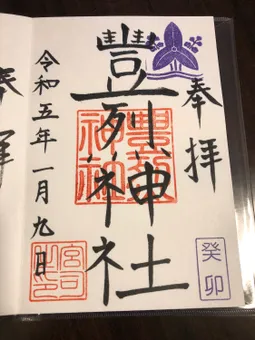 奉拝
癸卯
豐列神社
豊烈神社
令和五年一月九日
宮司之印